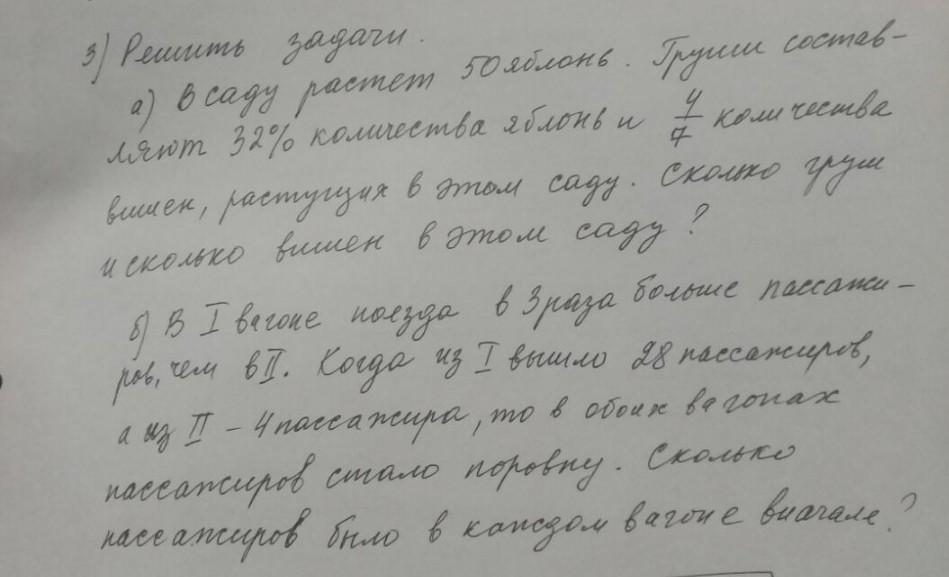 3) Решить задачи.
а) В саду растет 50 яблонь. Груши состав-
ляют 32% количества яблонь и 4/7 количества
вишен, растущих в этом саду. Сколько груш
и сколько вишен в этом саду?
б) В I вагоне поезда в 3 раза больше пассажи-
ров, чем в II. Когда из I вышло 28 пассажиров,
а из II - 4 пассажира, то в обоих вагонах
пассажиров стало поровну. Сколько
пассажиров было в каждом вагоне вначале?